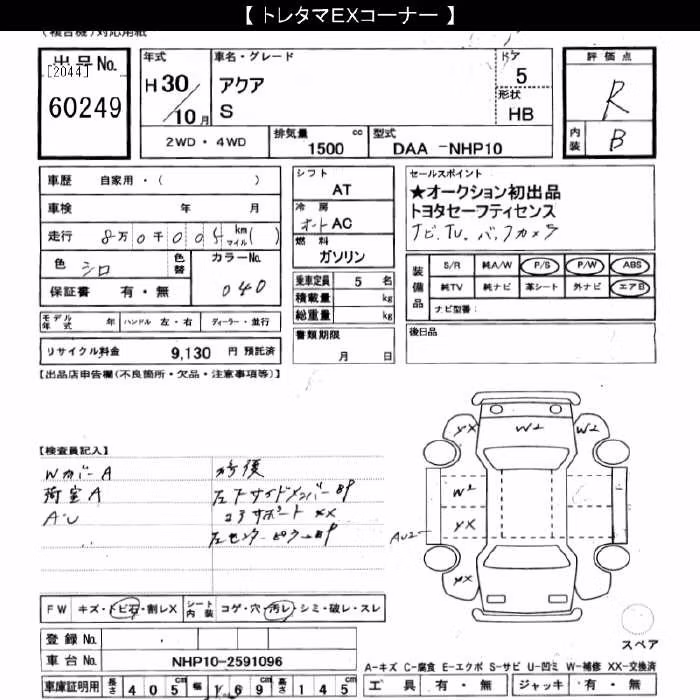 【 トレタマEXコーナー 】
(複合機)対応用紙
出品No.
[2044]
60249
年式
H30/10月
車名・グレード
アクア
S
ドア
5
形状
HB
評価点
R
内装
B
2WD・4WD
排気量 cc
1500
型式
DAA -NHP10
車歴 自家用・( )
車検 年 月
走行 8万0千005 km マイル( )
色 シロ
色替
カラーNo.
040
保証書 有・無
モデル年式 年 ハンドル 左・右 ディーラー・並行
リサイクル料金 9,130 円 預託済
シフト
AT
冷房
オートAC
燃料
ガソリン
乗車定員 5 名
積載量 kg
総重量 kg
書類期限
月 日
セールスポイント
★オークション初出品
トヨタセーフティセンス
ナビ,TV,バックカメラ
装備品
S/R 純A/W P/S P/W ABS
純TV 純ナビ 革シート 外ナビ エアB
ナビ型番:
後日品
【出品店申告欄(不良箇所・欠品・注意事項等)】
【検査員記入】
WカバーA
荷室A
AU
修復
左下サイドメンバーBP
コアサポート XX
左センターピラーBP
YX
W2
W2
W2
YX
AU2
YX
FW キズ・トビ石・割レX
シート内装 コゲ・穴・汚レ・シミ・破レ・スレ
登録No.
車台No. NHP10-2591096
車庫証明用 長さ 405cm 幅 169cm 高さ 145cm
スペア
A-キズ C-腐食 E-エクボ S-サビ U-凹ミ W-補修 XX-交換済
工具 有・無 ジャッキ 有・無